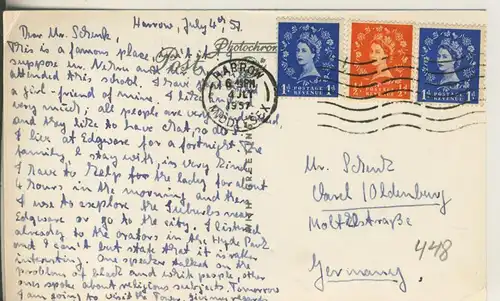 Harrow, July 4th 57.
Dear Mr. Schenk,
This is a famous place, isn't it? I
suppose Mr. Nehru and
attended this school. I have
a girl-friend of mine. I like
very much; all people are very
and they like to have chat, so do I.
I live at Edgware for a fortnight. The
family, I stay with, is very kind.
I have to help for the lady for about
4 hours in the morning and then
I use to explore the Suburbs near
Edgware or go to the city. I listened
already to the orators in the Hyde Park
and I can't but state that it is rather
interesting. One speaker talked on the
problem of black and white people, other
ones spoke about religious subjects. Tomorrow
I am going to visit the Tower. Give my regards
Photochrom
Post
HARROW
6 PM
4 JLY
1957
MIDDLESEX
1d 1d
POSTAGE
REVENUE
POSTAGE
REVENUE
1d 1d
POSTAGE
REVENUE
Mr. Schenk
Varel/Oldenburg
Moltkestraße
448
Germany.